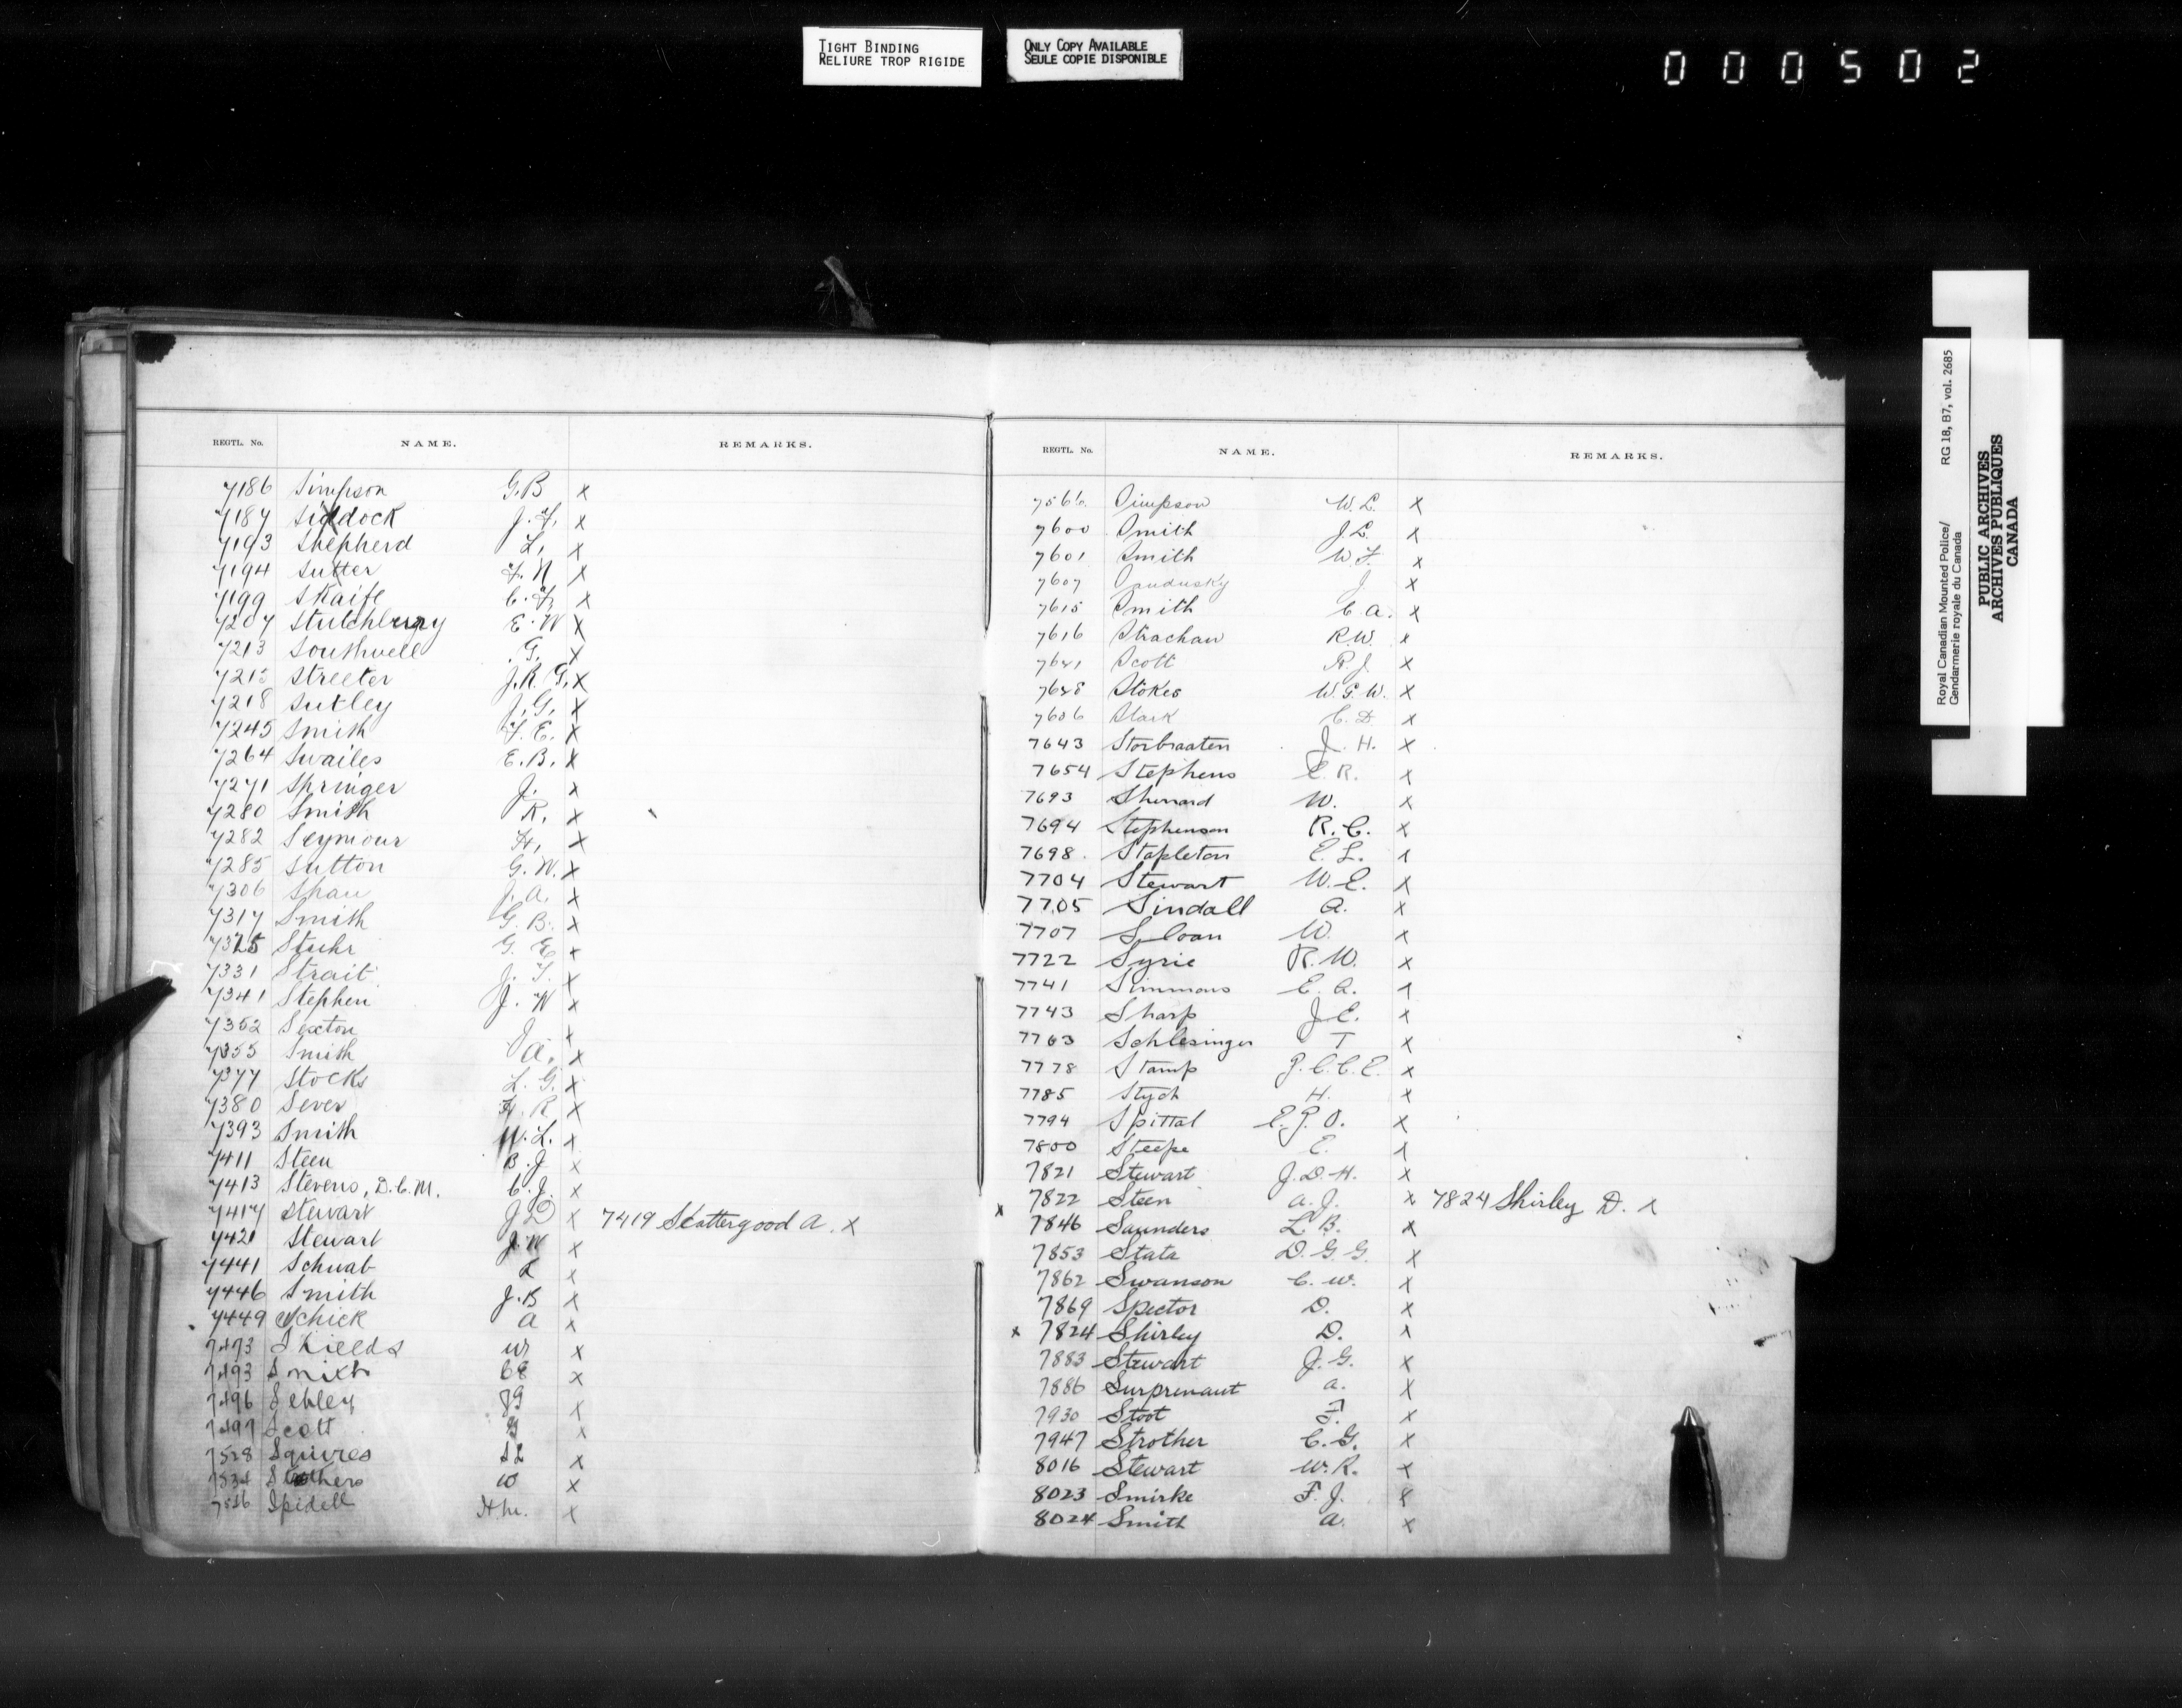 TIGHT BINDING
RELIURE TROP RIGIDE
ONLY COPY AVAILABLE
SEULE COPIE DISPONIBLE
000502
REGTL. No. NAME. REMARKS.
7186 Simpson G.B x
7187 Siddock J.F. x
7193 Shepherd L. x
7194 Sutter F.N x
7199 Skaife C.F. x
7207 Stutchbury E.W x
7213 Southwell G. x
Streeter J.R.G. x
7218 Sutley J.G. x
7245 Smith F.E. x
7264 Swailes E.B. x
7271 Springer J. x
7280 Smith R. x
7282 Seymour H. x
7285 Sutton G.W. x
7306 Shaw J.A. x
7317 Smith G.B. x
7325 Stuhr G.E x
7331 Strait J.T. x
7341 Stephen J.W x
7352 Sexton J x
7355 Smith A. x
7377 Stocks L.G. x
7380 Sever R x
7393 Smith W.L. x
7411 Steen B.J x
7413 Stevens, D.C.M. C.J. x
7417 Stewart J.D x 7419 Scattergood A. x
7421 Stewart J.W x
7441 Schwab x
7446 Smith J.B x
7449 Schick A x
7473 Shields W x
7493 Smith CE x
7496 Sebley x
7497 Scott x
7528 Squires x
W x
Spidell H.M. x
REGTL. No. NAME. REMARKS.
7566 Simpson W.L. x
7600 Smith J.L. x
7601 Smith W.F. x
7607 Sandusky J x
7615 Smith C.A. x
7616 Strachan R.W. x
Scott R.J. x
Stokes W.G.W. x
Stark C.D x
7643 Storbraaten J.H. x
7654 Stephens E.R. x
7693 W. x
7694 Stephenson R.C. x
7698 Stapleton E.L. x
7704 Stewart W.E. x
7705 Sindall A. x
7707 Sloan W. x
7722 Syrie R.W. x
7741 Simmons E.A. x
7743 Sharp J.E. x
7763 Schlesinger T x
7778 Stamp J.C.C.E. x
7785 Stych H. x
7794 Spittal E.J.O. x
7800 Steepe E. x
7821 Stewart J.D.H. x
7822 Steen A.J. x 7824 Shirley D. x
x 7846 Saunders L.B. x
7853 Stata D.G.G. x
7862 Swanson C.W. x
7869 Spector D. x
x 7824 Shirley D. x
7883 Stewart J.G. x
7886 Surprenaut A. x
7930 Stoot F. x
7947 Strother C.G. x
8016 Stewart W.R. x
8023 Smirke F.J. x
8024 Smith A. x
Royal Canadian Mounted Police/
Gendarmerie royale du Canada
RG 18, B7, vol. 2685
PUBLIC ARCHIVES
ARCHIVES PUBLIQUES
CANADA